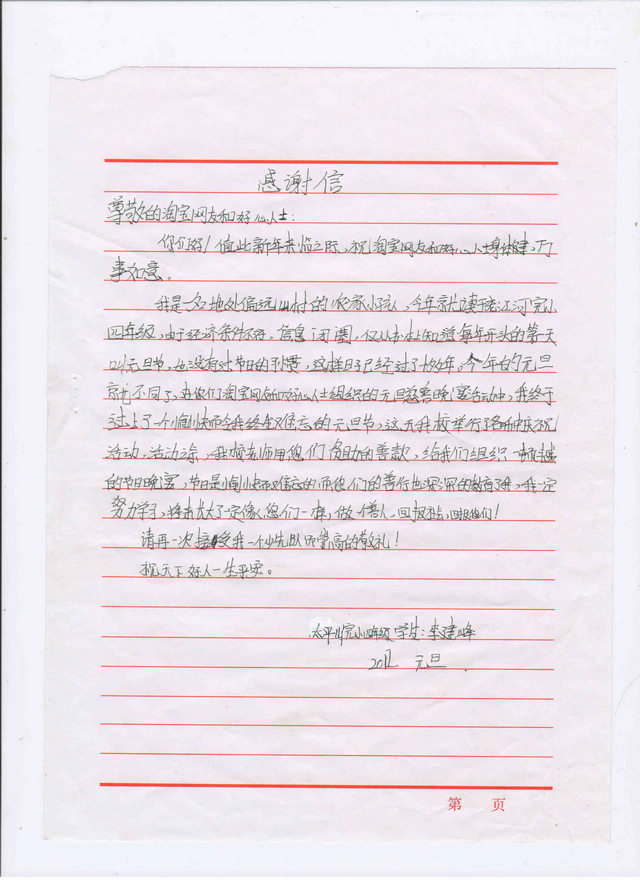 感谢信
尊敬的淘宝网友和好心人士:
你们好!值此新年来临之际,祝淘宝网友和好心人士身体健,万
事如意。
我是一名地处偏远山村的农家小孩,今年就读于江河完小
四年级,由于经济条件不好,信息闭圈,仅从书本上知道每年开头的第一天
叫元旦节,也没有过节日的习惯,这样日子已经过了十多年。今年的元旦
就不同了,在你们淘宝网友和好心人士组织的元旦慈善晚宴活动中,我终于
过上了一个愉快而令我终生难忘的元旦节,这天我校举行了各种庆祝
活动,活动余,我校老师用您们资助的善款,给我们组织一顿丰盛
的节日晚宴,节日是愉快难忘的而您们的善行也深深的教育了我,我一定
努力学习,将来长大了一定像您们一样,做一个人,回报社会,回报您们!
请再一次接受我一个少先队员崇高的敬礼!
祝天下好人一生平安。
太平川完小四年级 学生:李建峰
2012 元旦
第 页